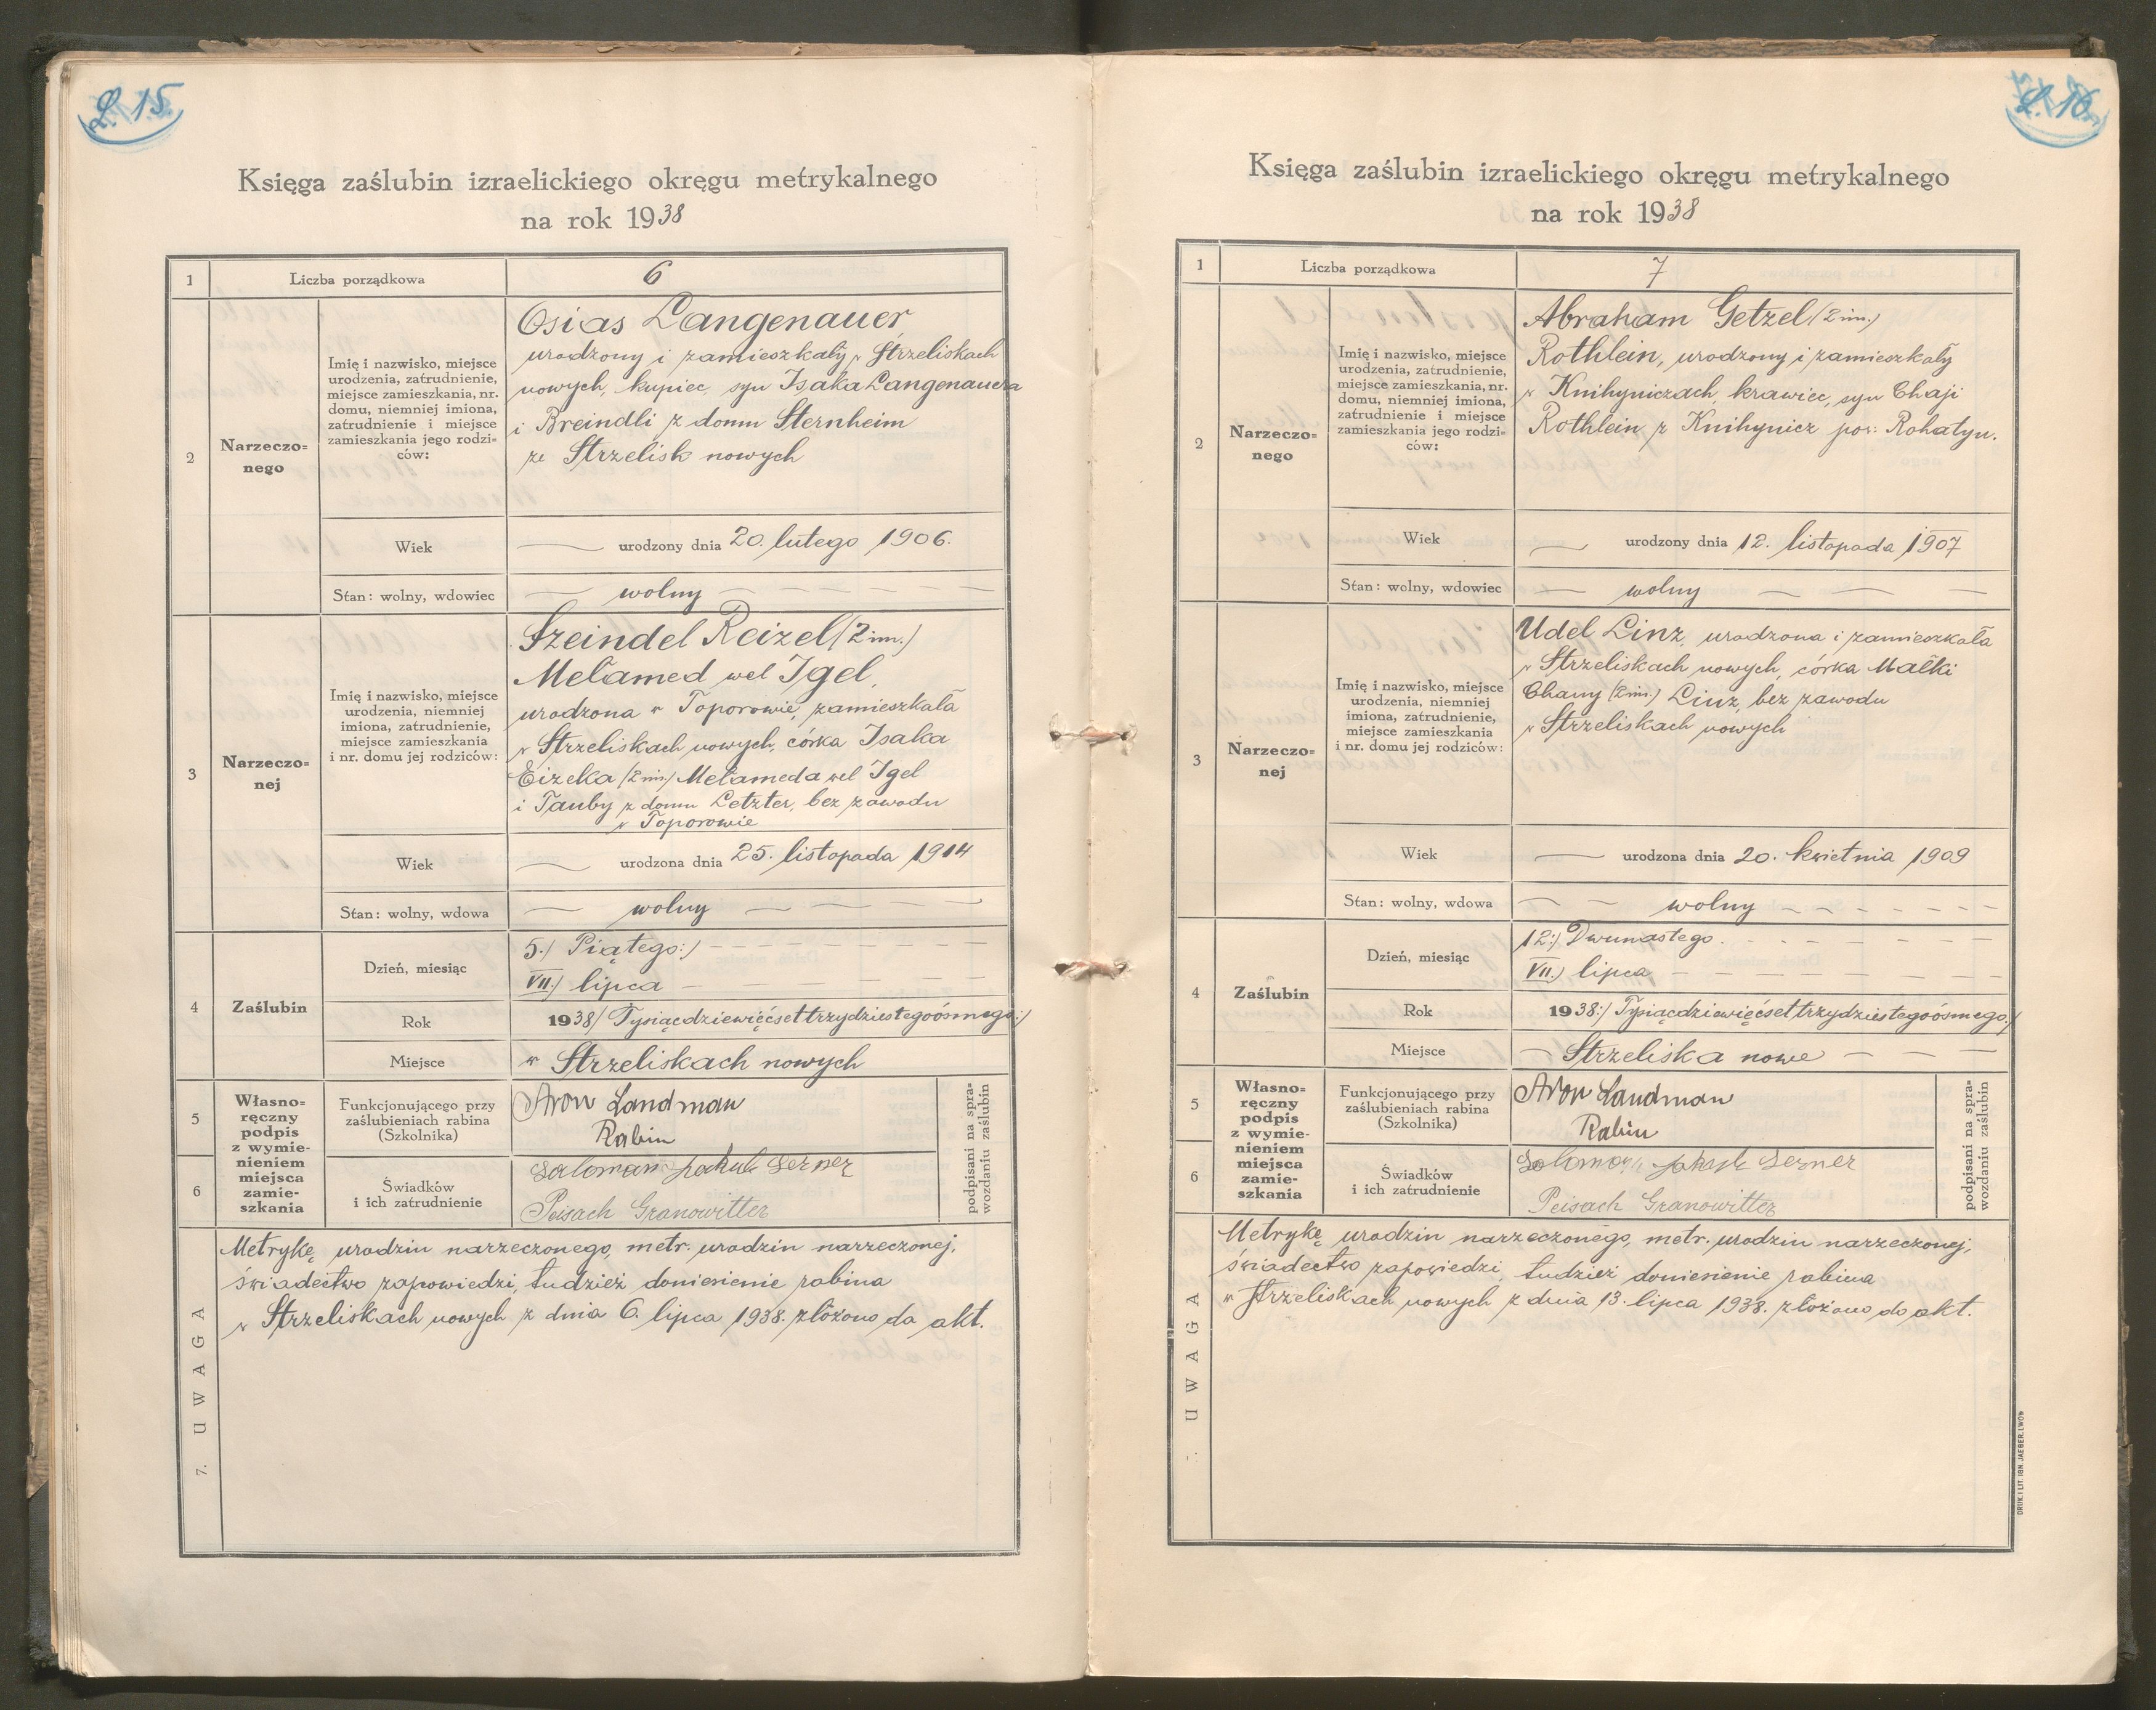 L. 15.
Księga zaślubin izraelickiego okręgu metrykalnego
na rok 1938
1
Liczba porządkowa
6
2
Narzeczo=
nego
Imię i nazwisko, miejsce
urodzenia, zatrudnienie,
miejsce zamieszkania, nr.
domu, niemniej imiona,
zatrudnienie i miejsce
zamieszkania jego rodzi=
ców:
Osias Langenauer,
urodzony i zamieszkały w Strzeliskach
nowych, kupiec, syn Isaka Langenauera
i Breindli z domu Sternheim
ze Strzelisk nowych
Wiek
urodzony dnia 20. lutego 1906.
Stan: wolny, wdowiec
wolny
3
Narzeczo=
nej
Imię i nazwisko, miejsce
urodzenia, niemniej
imiona, zatrudnienie,
miejsce zamieszkania
i nr. domu jej rodziców:
Szeindel Reizel (2 im.)
Melamed vel Igel,
urodzona w Toporowie, zamieszkała
w Strzeliskach nowych, córka Isaka
Eizeka (2 im.) Melameda vel Igel
i Tauby z domu Letzter, bez zawodu
w Toporowie
Wiek
urodzona dnia 25. listopada 1914
Stan: wolny, wdowa
wolny
4
Zaślubin
Dzień, miesiąc
5.) Piątego:)
VII.) lipca
Rok
1938/ Tysiącdziewięćsettrzydziestegoósmego:/
Miejsce
w Strzeliskach nowych
5
6
Własno=
ręczny
podpis
z wymie-
nieniem
miejsca
zamie-
szkania
Funkcjonującego przy
zaślubieniach rabina
(Szkolnika)
Aron Landman
Rabin
Świadków
i ich zatrudnienie
Salomon Jakub Lerner
Peisach Granowitter
podpisani na spra=
wozdaniu zaślubin
7. UWAGA
Metrykę urodzin narzeczonego, metr. urodzin narzeczonej,
świadectwo zapowiedzi, tudzież doniesienie rabina
w Strzeliskach nowych z dnia 6. lipca 1938. złożono do akt.
L. 16.
Księga zaślubin izraelickiego okręgu metrykalnego
na rok 1938
1
Liczba porządkowa
7
2
Narzeczo=
nego
Imię i nazwisko, miejsce
urodzenia, zatrudnienie,
miejsce zamieszkania, nr.
domu, niemniej imiona,
zatrudnienie i miejsce
zamieszkania jego rodzi=
ców:
Abraham Getzel (2 im.)
Rothlein, urodzony i zamieszkały
w Knihyniczach, krawiec, syn Chaji
Rothlein z Knihynicz pow: Rohatyn.
Wiek
urodzony dnia 12. listopada 1907
Stan: wolny, wdowiec
wolny
3
Narzeczo=
nej
Imię i nazwisko, miejsce
urodzenia, niemniej
imiona, zatrudnienie,
miejsce zamieszkania
i nr. domu jej rodziców:
Udel Linz, urodzona i zamieszkała
w Strzeliskach nowych, córka Małki
Chany (2 im.) Linz, bez zawodu
w Strzeliskach nowych
Wiek
urodzona dnia 20. kwietnia 1909
Stan: wolny, wdowa
wolny
4
Zaślubin
Dzień, miesiąc
12:) Dwunastego.
VII.) lipca
Rok
1938:/ Tysiącdziewięćsettrzydziestegoósmego:/
Miejsce
Strzeliska nowe
5
6
Własno=
ręczny
podpis
z wymie-
nieniem
miejsca
zamie-
szkania
Funkcjonującego przy
zaślubieniach rabina
(Szkolnika)
Aron Landman
Rabin
Świadków
i ich zatrudnienie
Salomon Jakub Lerner
Peisach Granowitter
podpisani na spra=
wozdaniu zaślubin
UWAGA
Metrykę urodzin narzeczonego, metr. urodzin narzeczonej,
świadectwo zapowiedzi, tudzież doniesienie rabina
w Strzeliskach nowych z dnia 13. lipca 1938. złożono do akt.
DRUK. I LIT. IGN. JAEGER, LWÓW